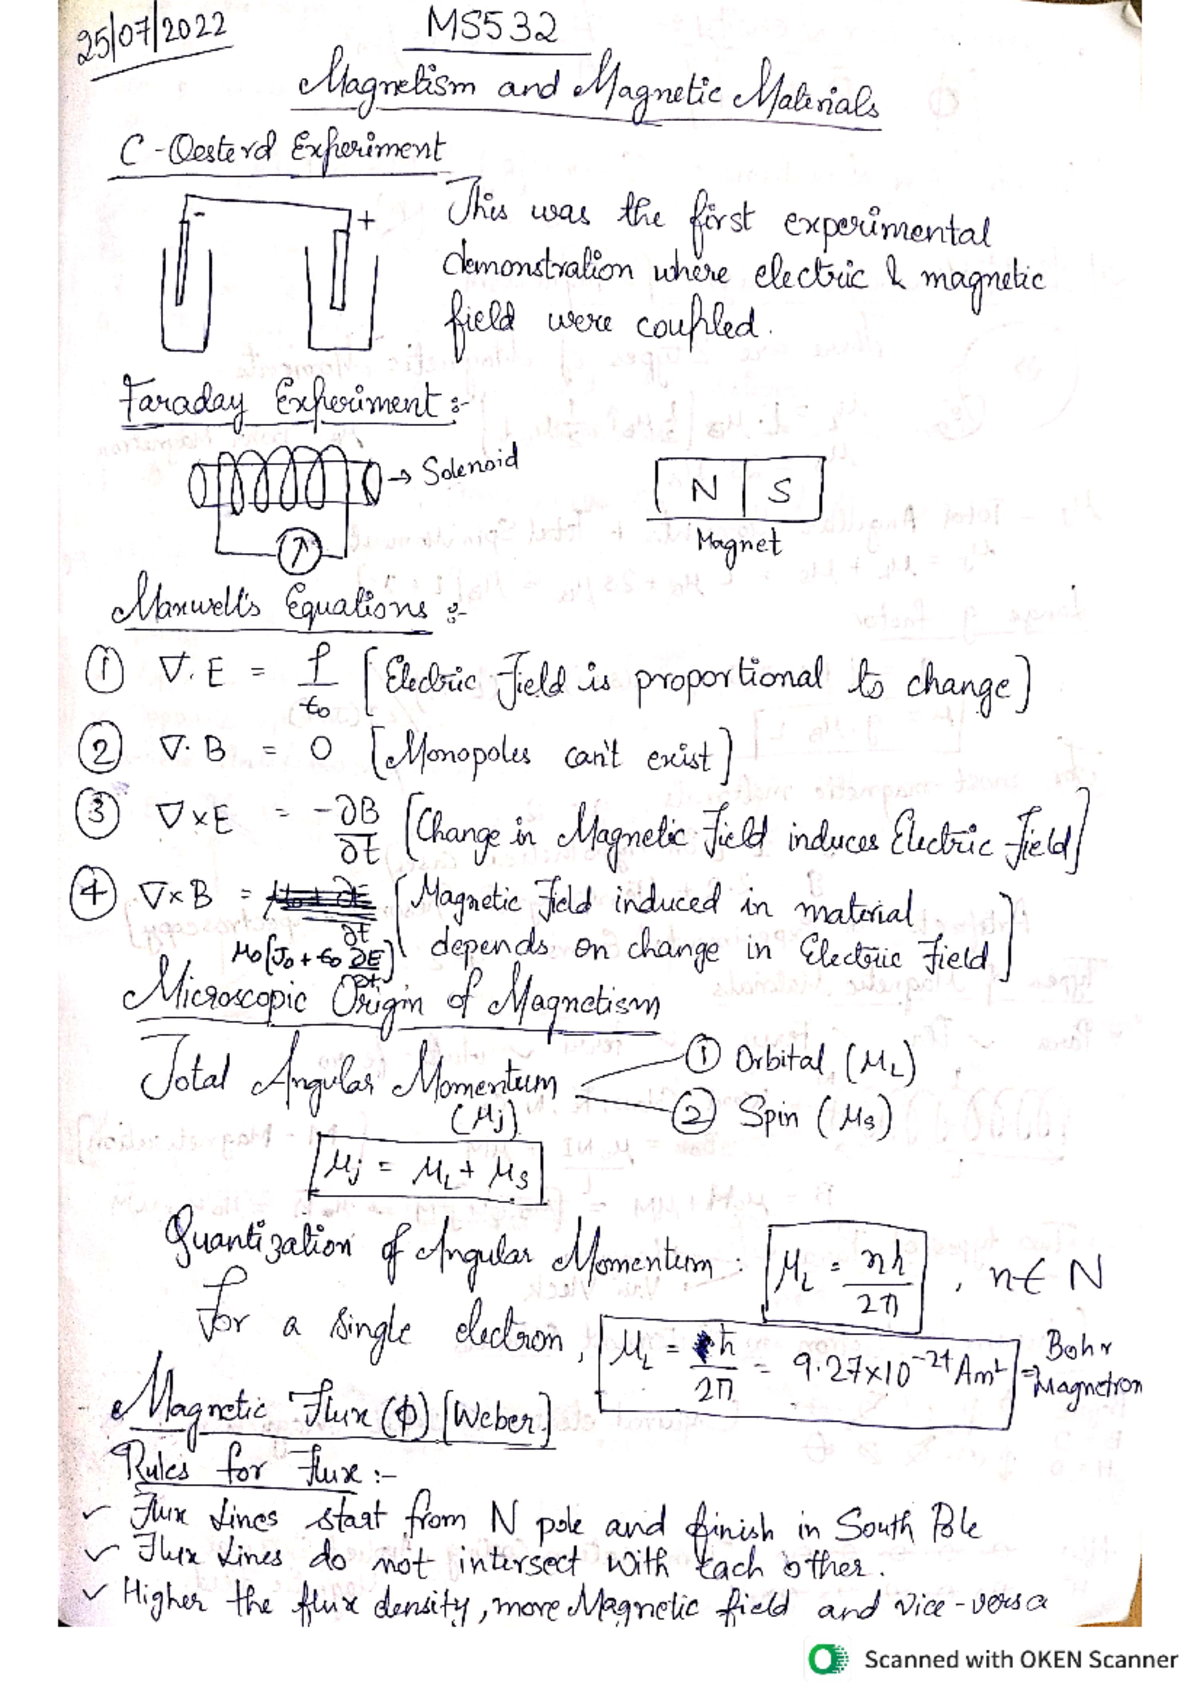 25/07/2022
MS532
Magnetism and Magnetic Materials
C-Oesterd Experiment
- +
This was the first experimental
demonstration where electric & magnetic
field were coupled.
Faraday Experiment :-
→ Solenoid
N S
Magnet
Maxwell's Equations :-
① ∇. E = ρ/ϵ0 [Electric Field is proportional to change]
② ∇. B = 0 [Monopoles can't exist]
③ ∇×E = -∂B/∂t [Change in Magnetic Field induces Electric Field]
④ ∇×B = μ0[J0 + ϵ0 ∂E/∂t] [Magnetic Field induced in material
depends on change in Electric Field]
Microscopic Origin of Magnetism
Total Angular Momentum (μj)
① Orbital (μL)
② Spin (μs)
μj = μL + μs
Quantization of Angular Momentum : μL = nh/2π , n ∈ N
For a single electron, μL = ħ/2π = 9.27×10⁻²⁴ Am² ⇒ Bohr Magnetron
Magnetic Flux (ϕ) [Weber]
Rules for Flux :-
✓ Flux Lines start from N pole and finish in South Pole
✓ Flux Lines do not intersect with each other.
✓ Higher the flux density, more Magnetic field and vice-versa
Scanned with OKEN Scanner